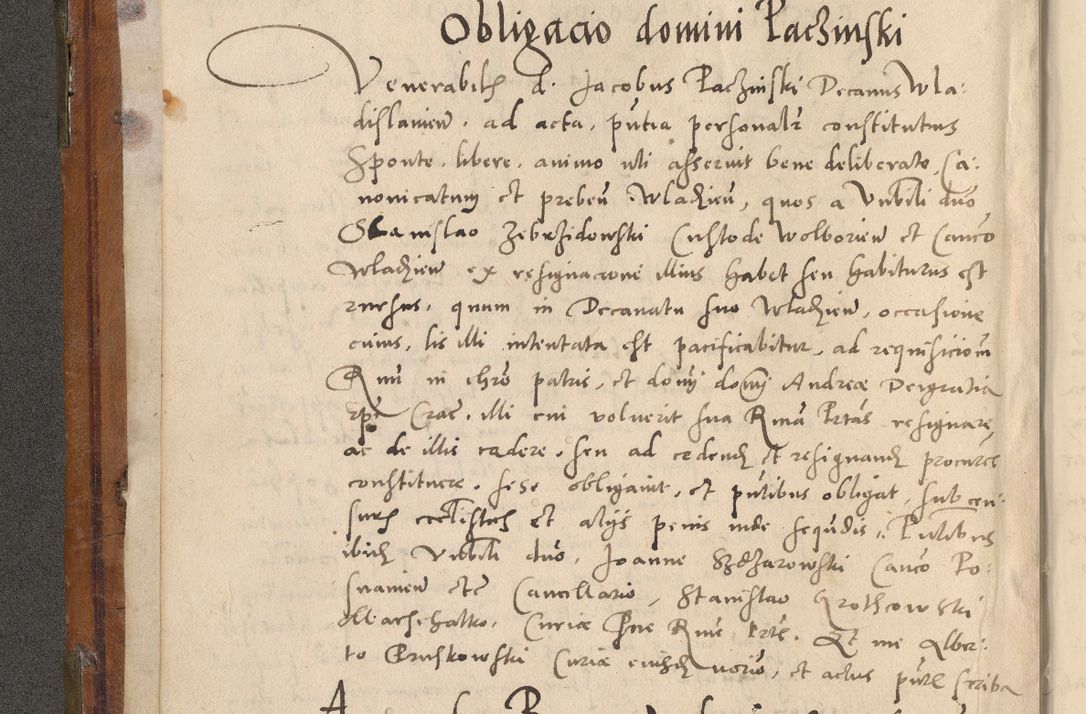 Obligacio domini Paczinski
Venerabilis d. Jacobus Paczinski Decanus Wla-
dislavien. ad acta, putia personalr constitutus
Sponte. libere. animo uti asseruit bene deliberato, Ca-
nonicatum et preben Wladien, quos a Vnbili dno
Stanislao Zebrzidowski Custode Wolborien et Canco
Wladzien ex resignacione illius habet seu habiturus est
rursus. quum in Decanatu suo Wladzien, occasione
cuius, lis illi intentata est pacificabitur, ad requisicionem
Rmi in chro patris, et domi domi Andreae Dei gratia
epi Crac. illi cui voluerit sua Rma Ptas resignare
ac de illis cedere. seu ad cedend et resignand procures
constituere. sese obligavit, et putibus obligat, sub cen-
suris ecclisticis et alijs penis inde sequdis. Putibus
ibid Vnbili dno, Joanne Canco Po-
snanien etc Cancillario, Stanislao Grothcowski
Marschalko. Curiae Pne Rme Ptis. Et me Alber-
to Pruskowski Curiae eiusd notrio, et actus put scriba